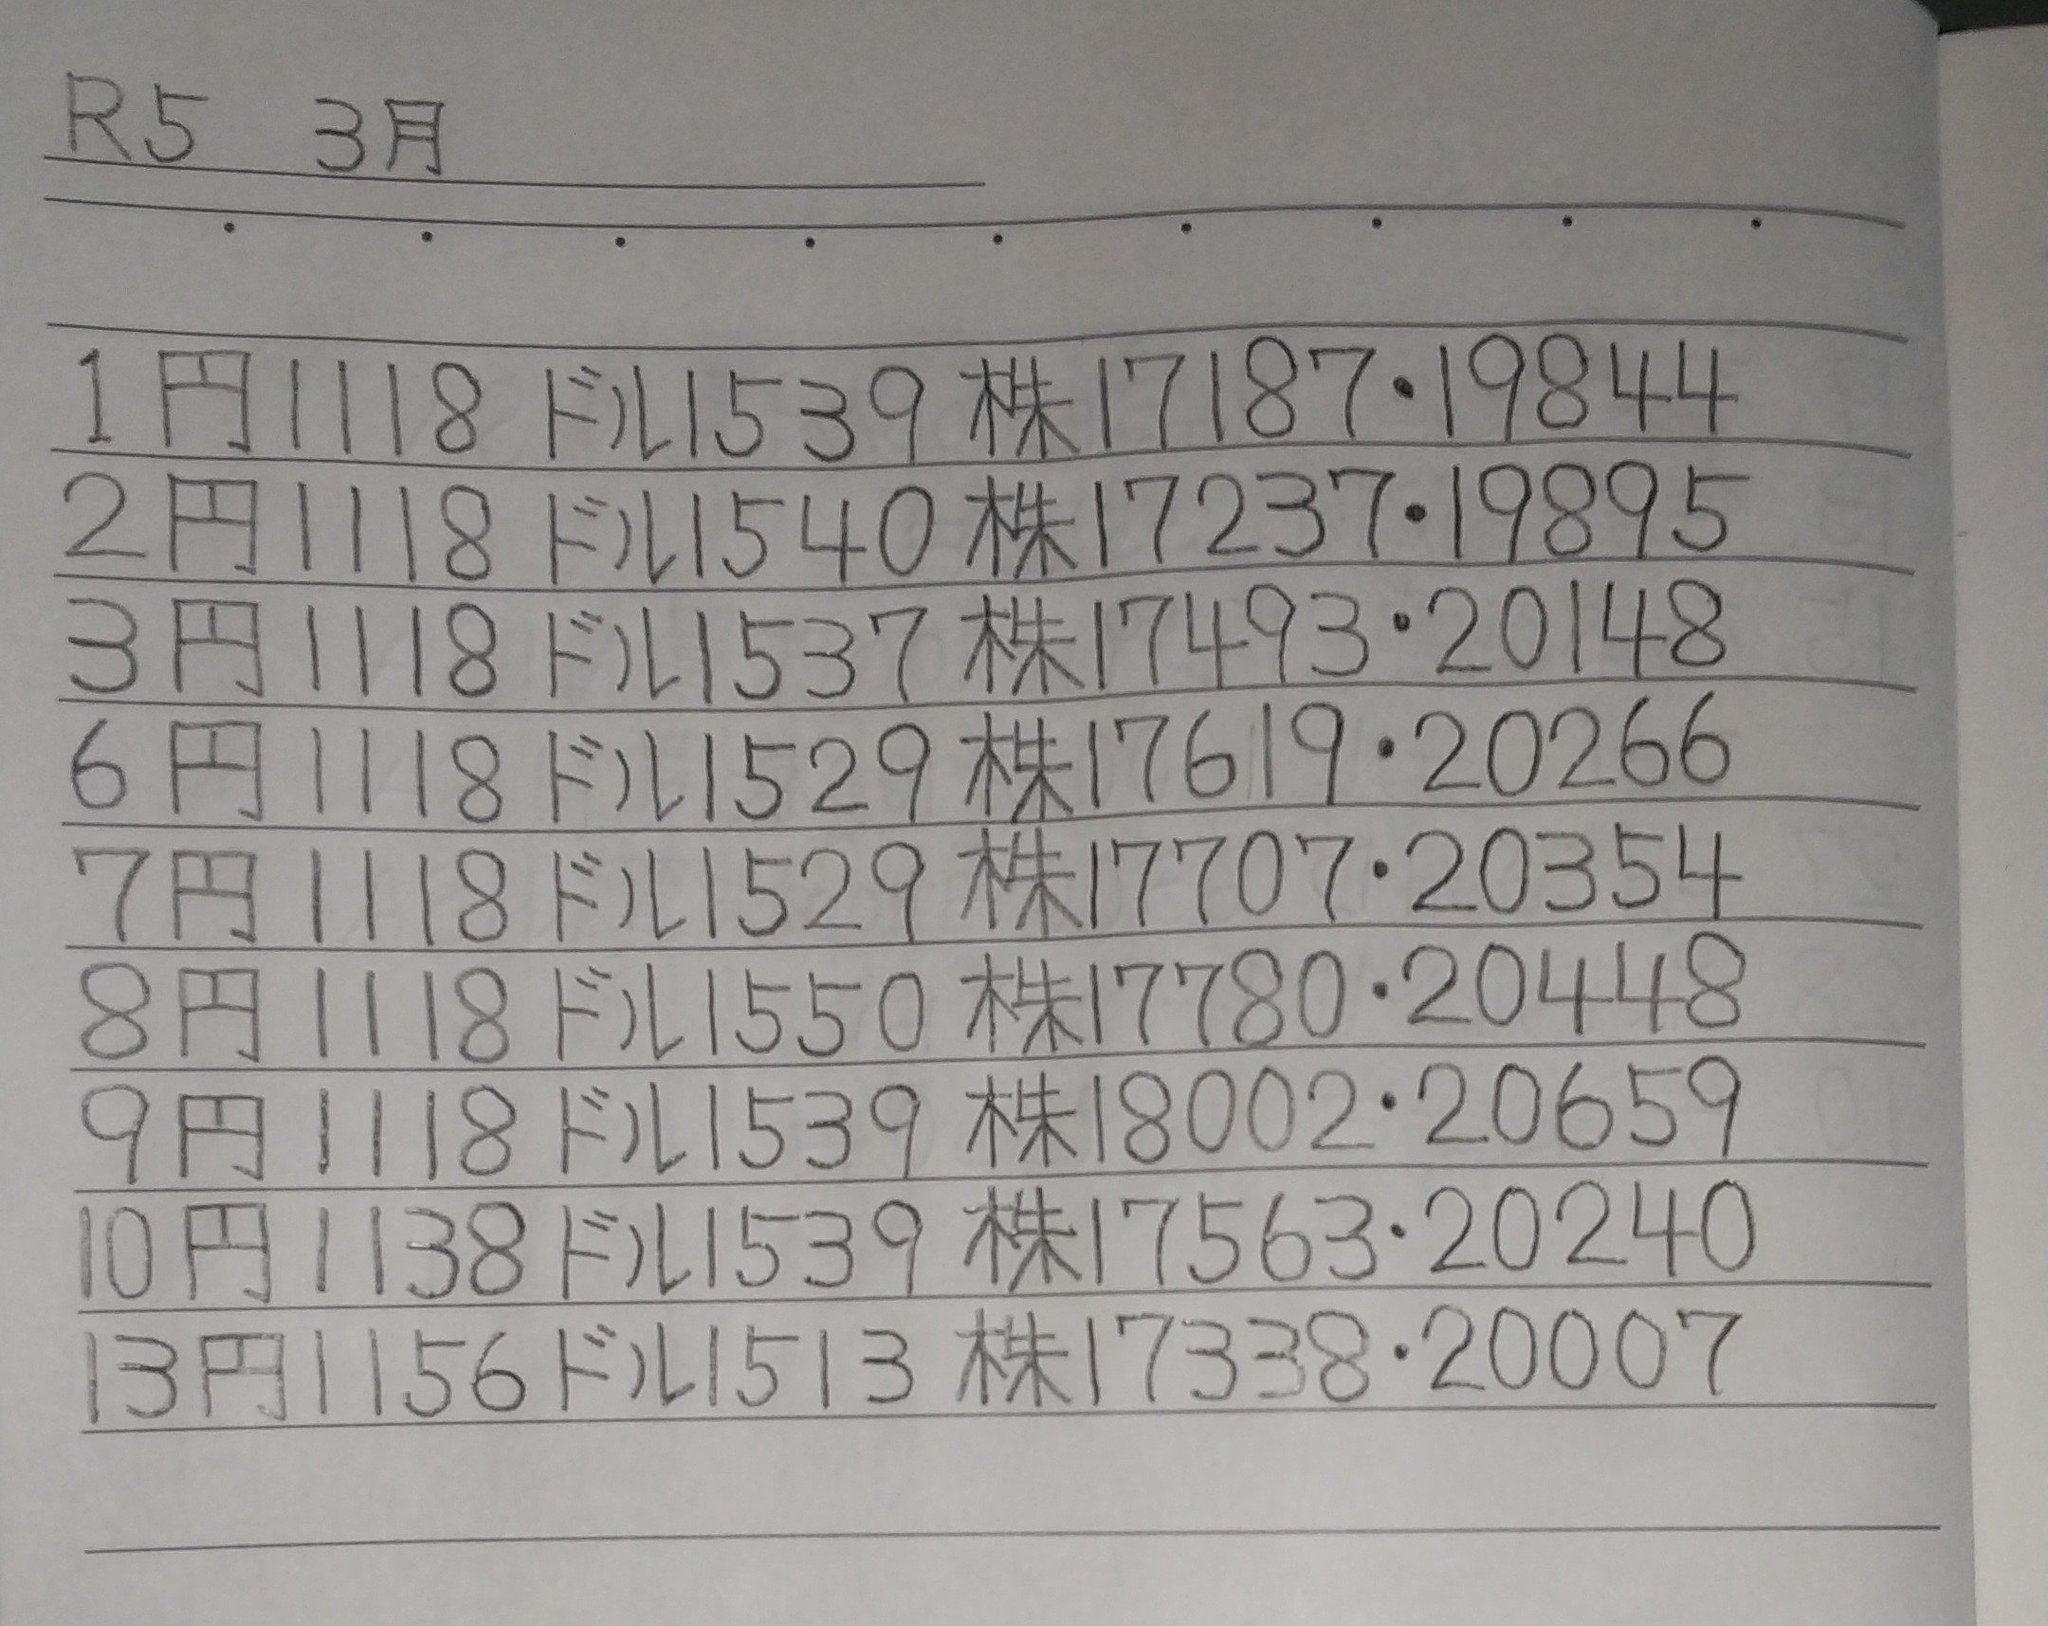 R5 3月
1円1118 ドル1539 株17187・19844
2円1118 ドル1540 株17237・19895
3円1118 ドル1537 株17493・20148
6円1118 ドル1529 株17619・20266
7円1118 ドル1529 株17707・20354
8円1118 ドル1550 株17780・20448
9円1118 ドル1539 株18002・20659
10円1138 ドル1539 株17563・20240
13円1156 ドル1513 株17338・20007